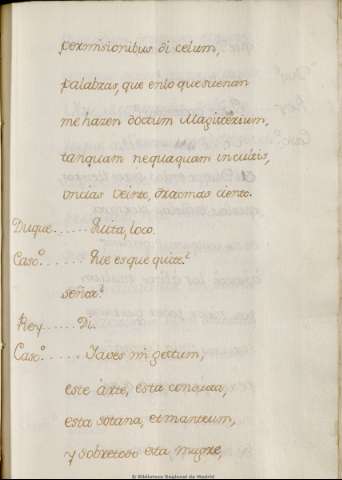 permisionibus di celum,
palabras, que enlo que suenan
me hazen doctum Magisterium,
tanquam nequaquam in cutis,
oncias veinte, dracmas ciento.
Duque...... Quita, loco.
Casc.º..... Rie es que quita?
señor?
Rey...... Di.
Casc.º..... Y aves mi gestum,
este arte, esta
esta sotana, et manteum,
y sobretodo esta mugre,
© Biblioteca Regional de Madrid